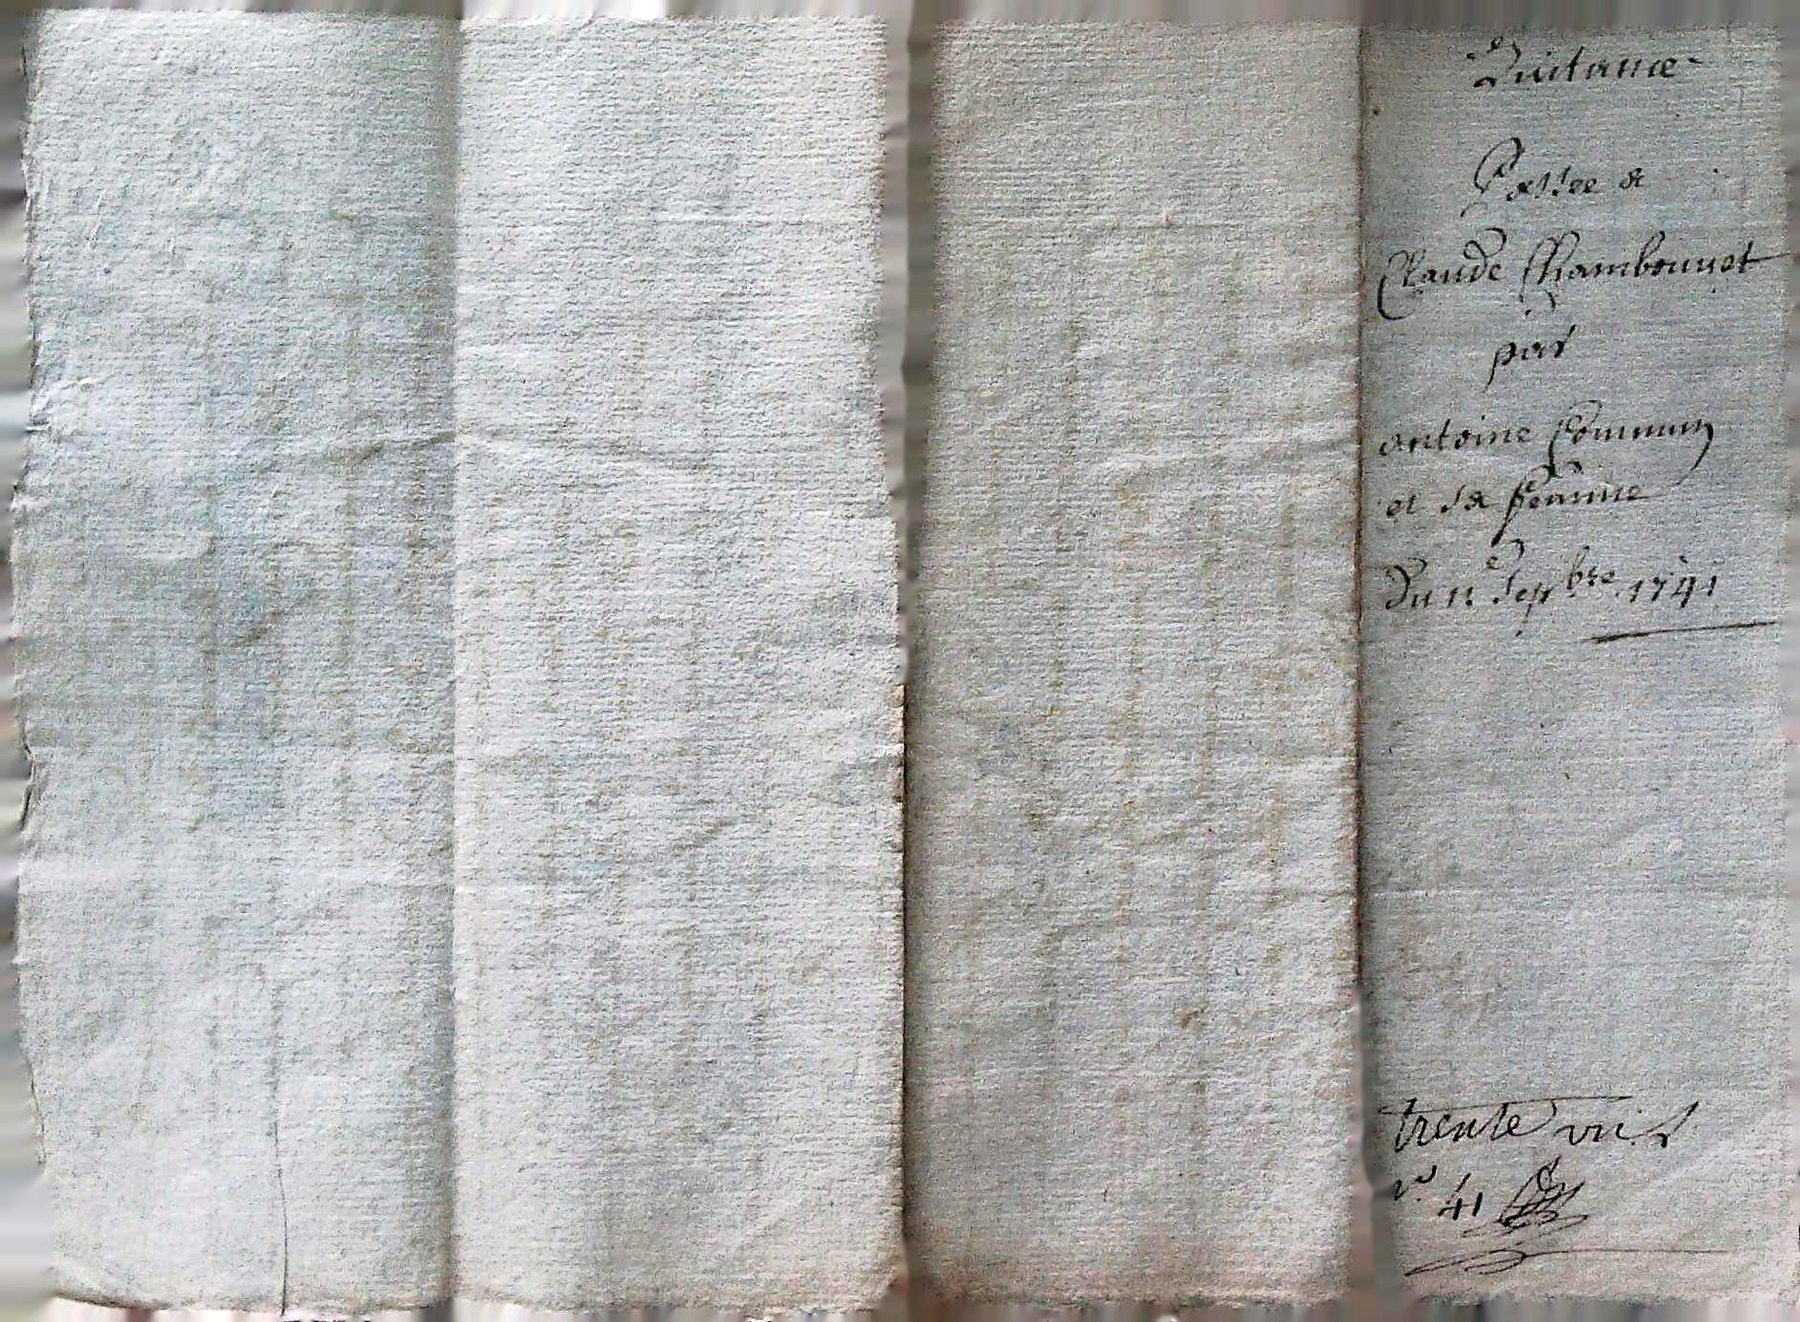 Quitance
Passee a
Claude Chambonnet
par
antoine Commun
et sa femme
Du 11e Sepbre 1741
trente
n° 41